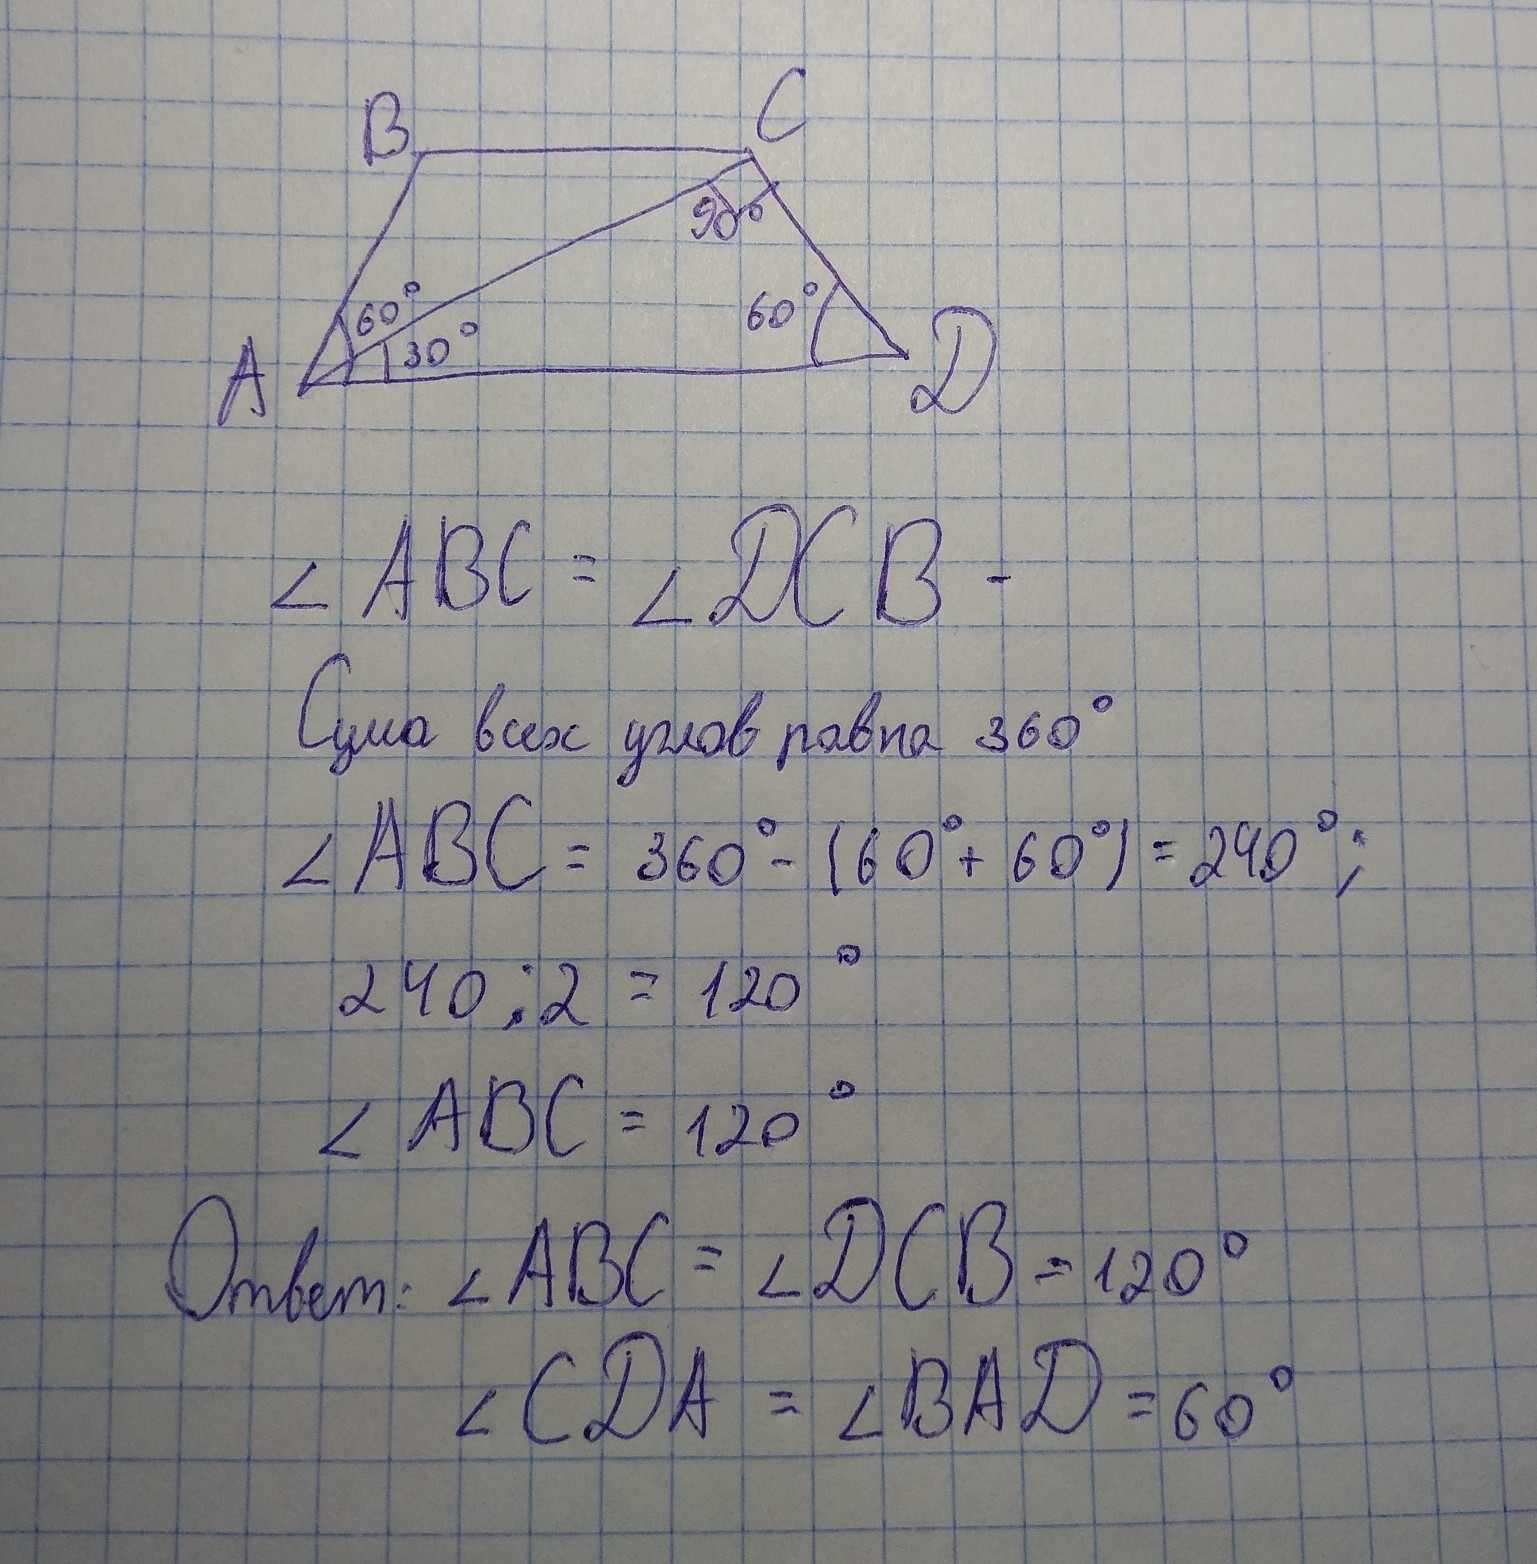 B C
90°
60° 60°
30°
A D
∠ABC = ∠DCB -
Сума всех углов равна 360°
∠ABC = 360° - (60° + 60°) = 240°;
240 : 2 = 120°
∠ABC = 120°
Ответ: ∠ABC = ∠DCB = 120°
∠CDA = ∠BAD = 60°